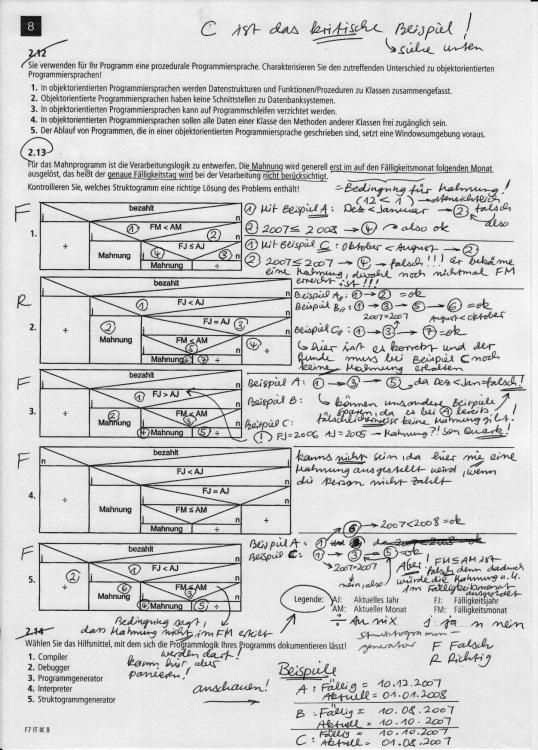 8
C ist das kritische Beispiel!
↳ siehe unten
2.12
Sie verwenden für Ihr Programm eine prozedurale Programmiersprache. Charakterisieren Sie den zutreffenden Unterschied zu objektorientierten
Programmiersprachen!
1. In objektorientierten Programmiersprachen werden Datenstrukturen und Funktionen/Prozeduren zu Klassen zusammengefasst.
2. Objektorientierte Programmiersprachen haben keine Schnittstellen zu Datenbanksystemen.
3. In objektorientierten Programmiersprachen kann auf Programmschleifen verzichtet werden.
4. In objektorientierten Programmiersprachen sollen alle Daten einer Klasse den Methoden anderer Klassen frei zugänglich sein.
5. Der Ablauf von Programmen, die in einer objektorientierten Programmiersprache geschrieben sind, setzt eine Windowsumgebung voraus.
2.13
Für das Mahnprogramm ist die Verarbeitungslogik zu entwerfen. Die Mahnung wird generell erst im auf den Fälligkeitsmonat folgenden Monat
ausgelöst, das heißt der genaue Fälligkeitstag wird bei der Verarbeitung nicht berücksichtigt.
Kontrollieren Sie, welches Struktogramm eine richtige Lösung des Problems enthält!
= Bedingung für Mahnung!
(12 < 1) → offensichtlich
F
bezahlt
1 FM < AM
j 2 n
FJ ≤ AJ
1. ÷ Mahnung 4 3 n
Mahnung ÷
1 Mit Beispiel A: Dez < Januar → 2 falsch
2 2007 ≤ 2008 → 4 also ok
also
1 Mit Beispiel C: Oktober < August → 2
2 2007 ≤ 2007 → 4 → falsch!!! Er bekäme
eine Mahnung, obwohl noch nichtmal FM
erreicht ist!!!
R
bezahlt
1 FJ < AJ
j n
FJ = AJ 3
2. ÷ 2 Mahnung FM < AM 4 ÷
5
Mahnung 6 7 ÷
Beispiel A: 1 → 2 = ok
Beispiel B: 1 → 3 → 5 → 6 = ok
2007=2007 August < Oktober
Beispiel C: 1 → 3 → 7 = ok
↳ hier ist es korrekt und der
Kunde muss bei Beispiel C noch
keine Mahnung erhalten
F
bezahlt
1 FJ > AJ
j n
3. ÷ 2 Mahnung FM < AM
3
4 Mahnung 5 ÷
Beispiel A: 1 → 3 → 5 da Dez < Jan = falsch!
Beispiel B: ↳ können uns andere Beispiele
sparen, da es bei A bereits
Beispiel C: fälschlicherweise keine Mahnung gibt.
! FJ=2006 AJ=2005 → Mahnung?! So'n Quark!
F
bezahlt
j n
FJ < AJ
FJ = AJ
4. ÷ Mahnung FM ≤ AM
j n
Mahnung ÷ ÷
kanns nicht sein, da hier nie eine
Mahnung ausgestellt wird, wenn
die Person nicht zahlt
F
bezahlt
j 1 FJ < AJ n
5. 2 ÷ 6 Mahnung FM ≤ AM
3
4 Mahnung 5 ÷
6 → 2007 < 2008 = ok
Beispiel A: 1
Beispiel C: 1 → 3 → 5 = ok
2007=2007
nein, also!
Aber! FM ≤ AM ist
falsch denn dadurch
würde die Mahnung u.U.
im Fälligkeitsmonat
ausgestellt
Bedingung sagt,
dass Mahnung nicht im FM erstellt
werden darf!
kann hier aber
passieren!
Legende:
AJ: Aktuelles Jahr
FJ: Fälligkeitsjahr
AM: Aktueller Monat
FM: Fälligkeitsmonat
÷ tu nix j ja n nein
Struktogramm-
generator
F Falsch
R Richtig
2.14
Wählen Sie das Hilfsmittel, mit dem sich die Programmlogik Ihres Programms dokumentieren lässt!
1. Compiler
2. Debugger
3. Programmgenerator
4. Interpreter
5. Struktogrammgenerator
anschauen!
Beispiele
A: Fällig = 10.12.2007
Aktuell = 01.01.2008
B: Fällig = 10.08.2007
Aktuell = 10.10.2007
C: Fällig = 10.10.2007
Aktuell = 01.08.2007
F7 IT IK 8